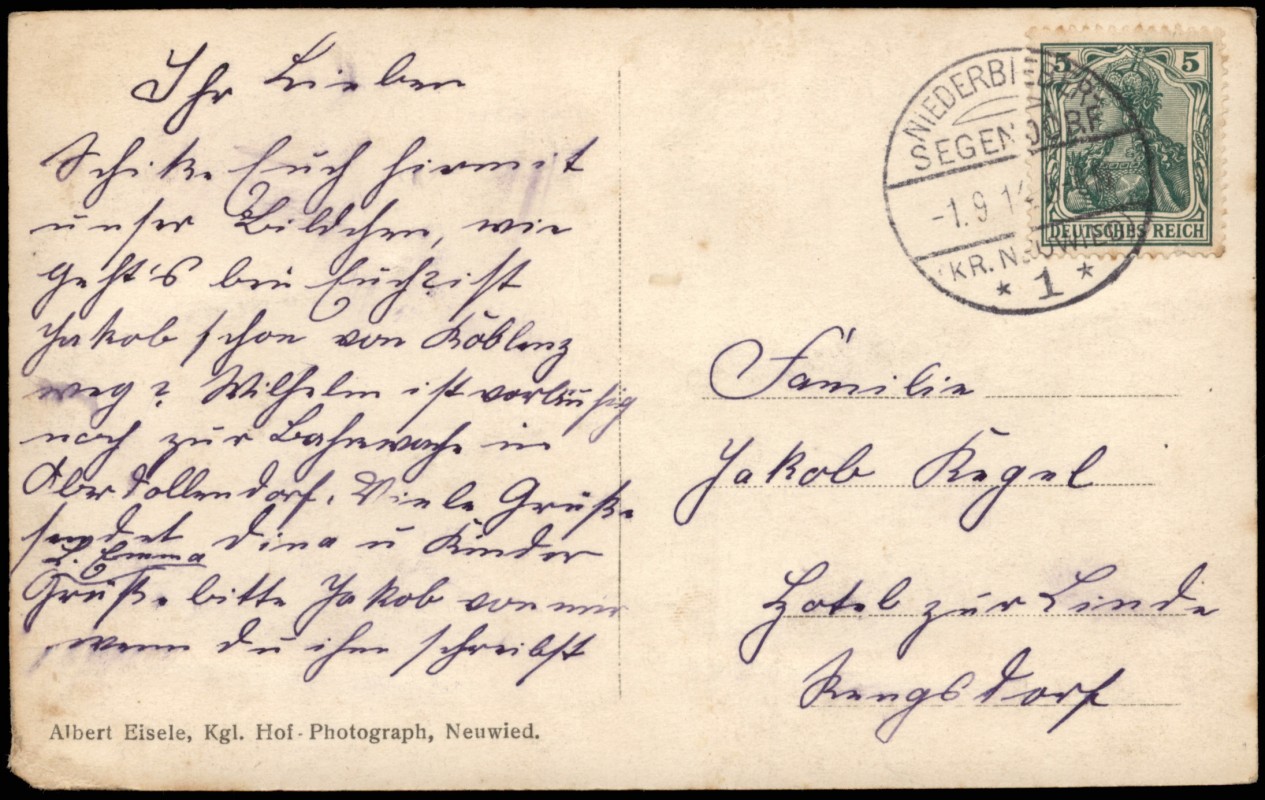 Ihr Lieben
Schike Euch hirmit
unser Bildchen, wie
geht's bei Euch? ist
Jakob schon von Koblenz
weg? Wilhelm ist vorläufig
noch zur Bahnwache in
Oberdollendorf. Viele Grüße
sendet Dina u Kinder
L. Emma
Grüße bitte Jakob von mir
wenn du ihm schreibst
Albert Eisele, Kgl. Hof-Photograph, Neuwied.
NIEDERBIEBER-
SEGENDORF
-1.9.14
KR. NEUWIED
* 1 *
5 5
DEUTSCHES REICH
Familie
Jakob Kegel
Hotel zur Linde
Rengsdorf